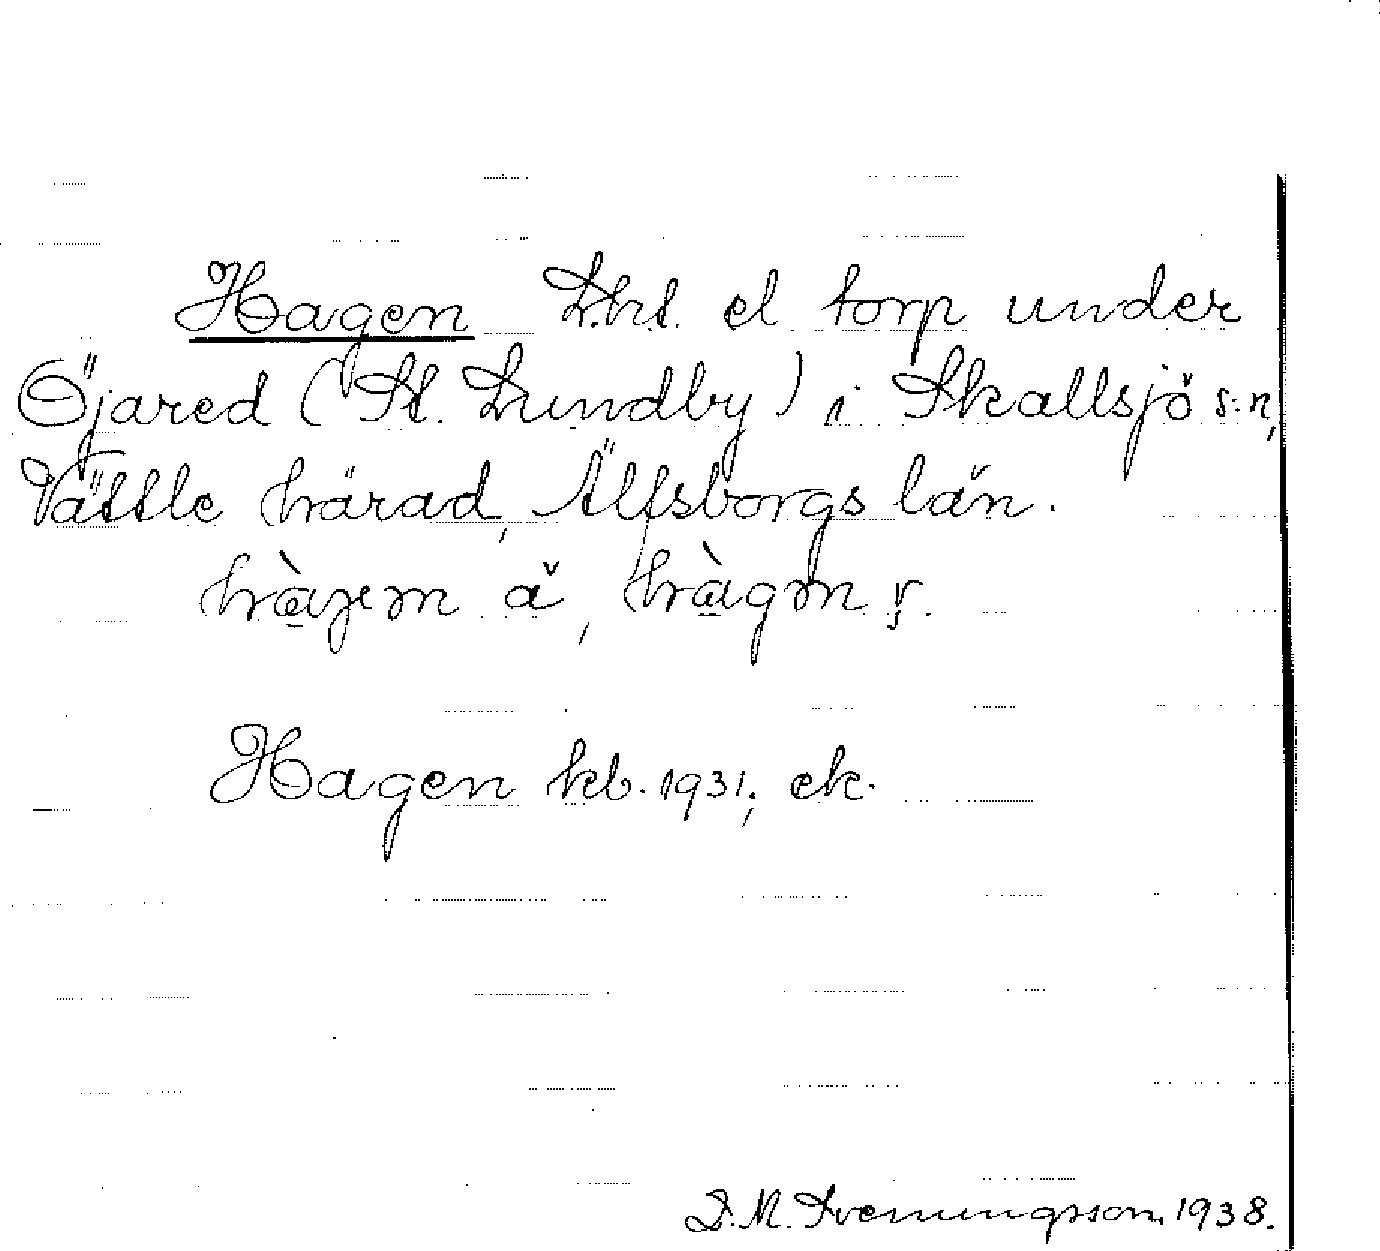 Hagen Lht. el torp under
Öjared (St. Lundby) i Skallsjö s:n,
Vättle härad, Älfsborgs län.
hàgen ä, hàgn y.
Hagen kb. 1931; ek.
D.M. Svenningsson, 1938.